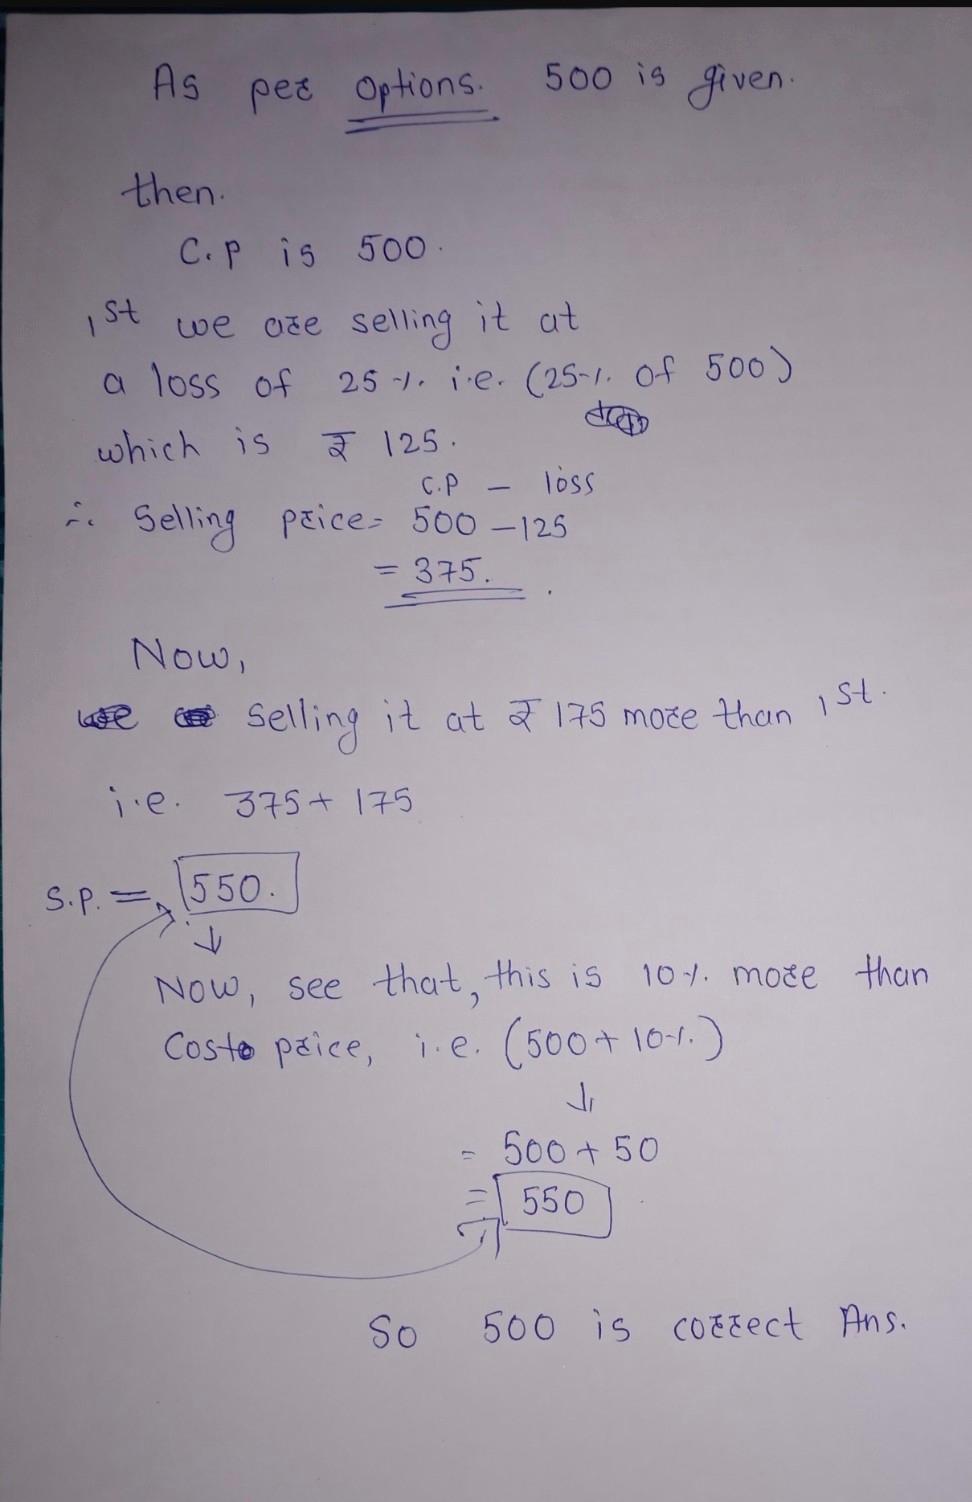 As per options. 500 is given.
then.
C.P is 500.
1st we are selling it at
a loss of 25 %. i.e. (25%. of 500)
which is ₹ 125.
C.P - loss
∴ Selling price = 500 - 125
= 375.
Now,
selling it at ₹ 175 more than 1st.
i.e. 375 + 175
S.P. = 550.
↓
Now, see that, this is 10%. more than
Cost price, i.e. (500 + 10%.)
↓
= 500 + 50
= 550
So 500 is correct Ans.